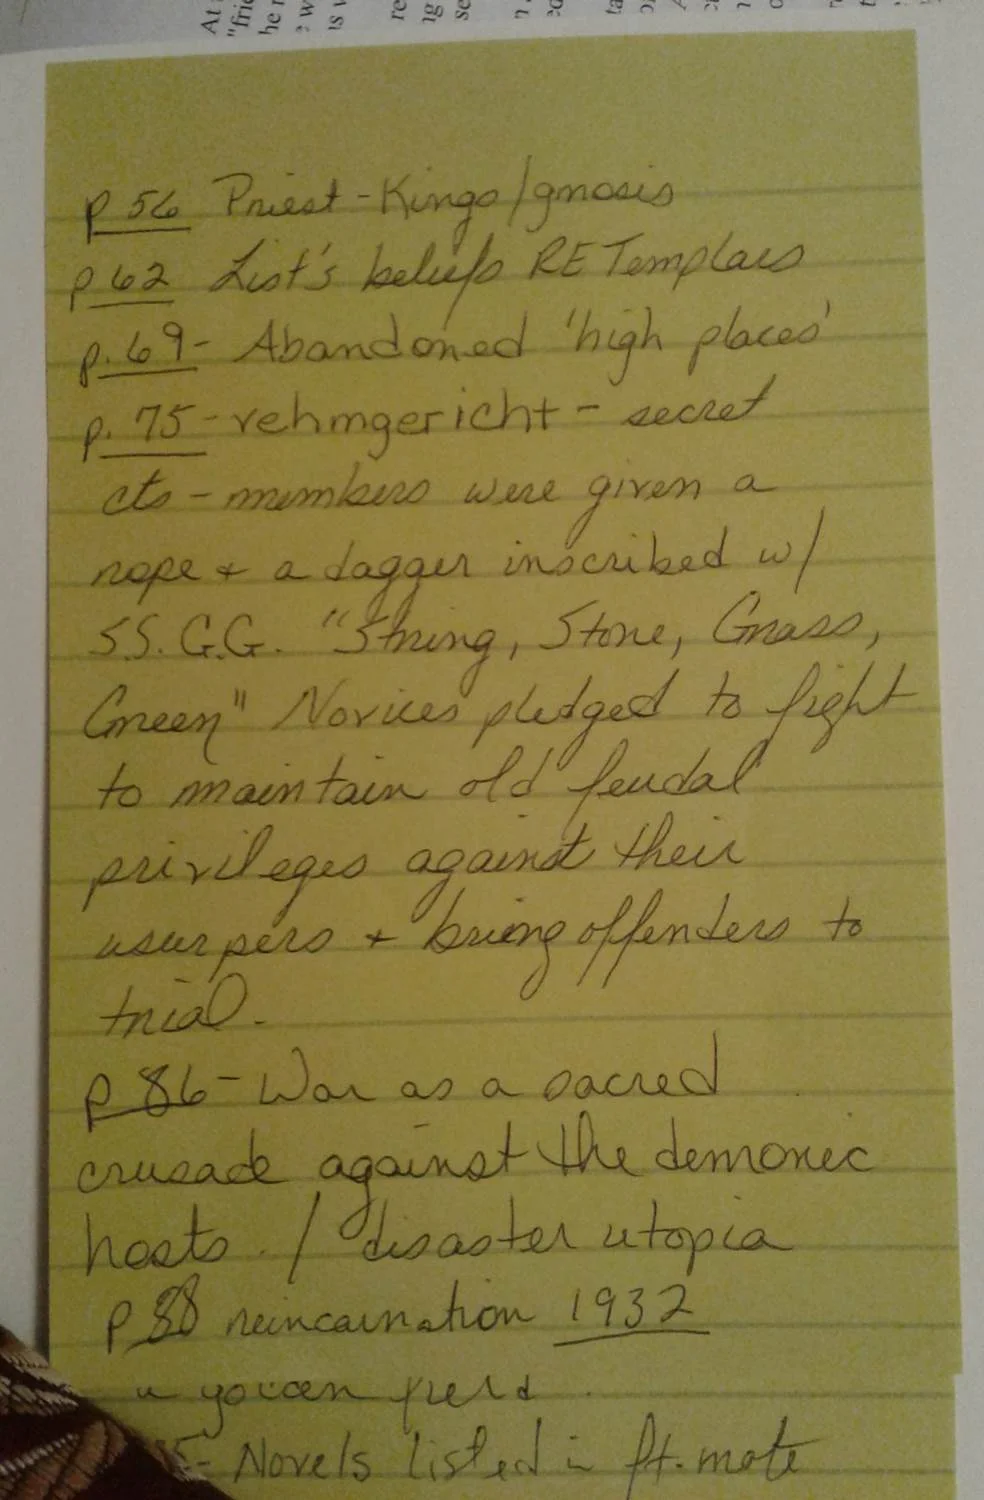 p 56 Priest-Kings/gnosis
p 62 List's beliefs RE Templars
p. 69- Abandoned 'high places'
p. 75-vehmgericht - secret
cts - members were given a
rope + a dagger inscribed w/
S.S. G.G. "String, Stone, Grass,
Green" Novices pledged to fight
to maintain old feudal
privileges against their
usurpers + bring offenders to
trial.
p 86- War as a sacred
crusade against the demonic
hosts. / disaster utopia
p 88 reincarnation 1932
5- Novels listed in ft. note